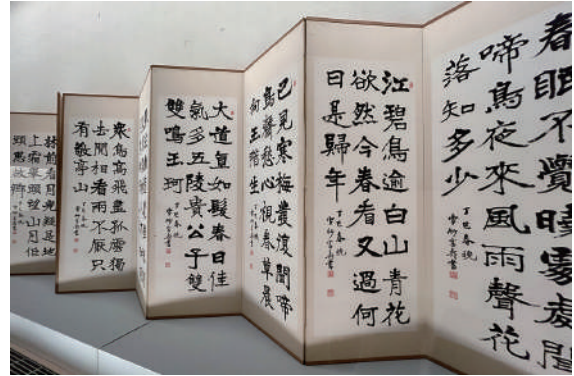 春眠不覺曉處處聞
啼鳥夜來風雨聲花
落知多少
丁巳春晚
江碧鳥逾白山青花
欲然今春看又過何
日是歸年
丁巳春晚
已見寒梅發復聞啼
鳥聲愁心視春草畏
向玉階生
大道直如髮春日佳
氣多五陵貴公子雙
雙鳴玉珂
衆鳥高飛盡孤雲獨
去閒相看兩不厭只
有敬亭山
牀前看月光疑是地
上霜擧頭望山月低
頭思故鄉